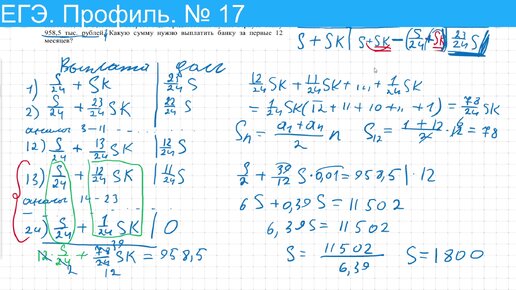 ЕГЭ. Профиль. № 17
958,5 тыс. рублей. Какую сумму нужно выплатить банку за первые 12
месяцев?
S + SK | S + SK - (S/24 + SK) | 23/24 S
Выплата долг
1) S/24 + SK | 23/24 S
2) S/24 + 23/24 SK | 22/24 S
аналог 3-11 ...
12) S/24 + 13/24 SK | 12/24 S
13) S/24 + 12/24 SK | 11/24 S
аналог 14-23
24) S/24 + 1/24 SK | 0
12·S/24 + 78/24 SK = 958,5
2 39 12
12/24 SK + 11/24 SK + ... + 1/24 SK
= 1/24 SK (12 + 11 + 10 + .. + 1) = 78/24 SK
Sn = (a1 + an)/2 n S12 = (1 + 12)/2 · 12 = 78
6
S/2 + 39/12 S · 0,01 = 958,5 | · 12
6 S + 0,39 S = 11502
6,39 S = 11502
S = 11502/6,39 S = 1800